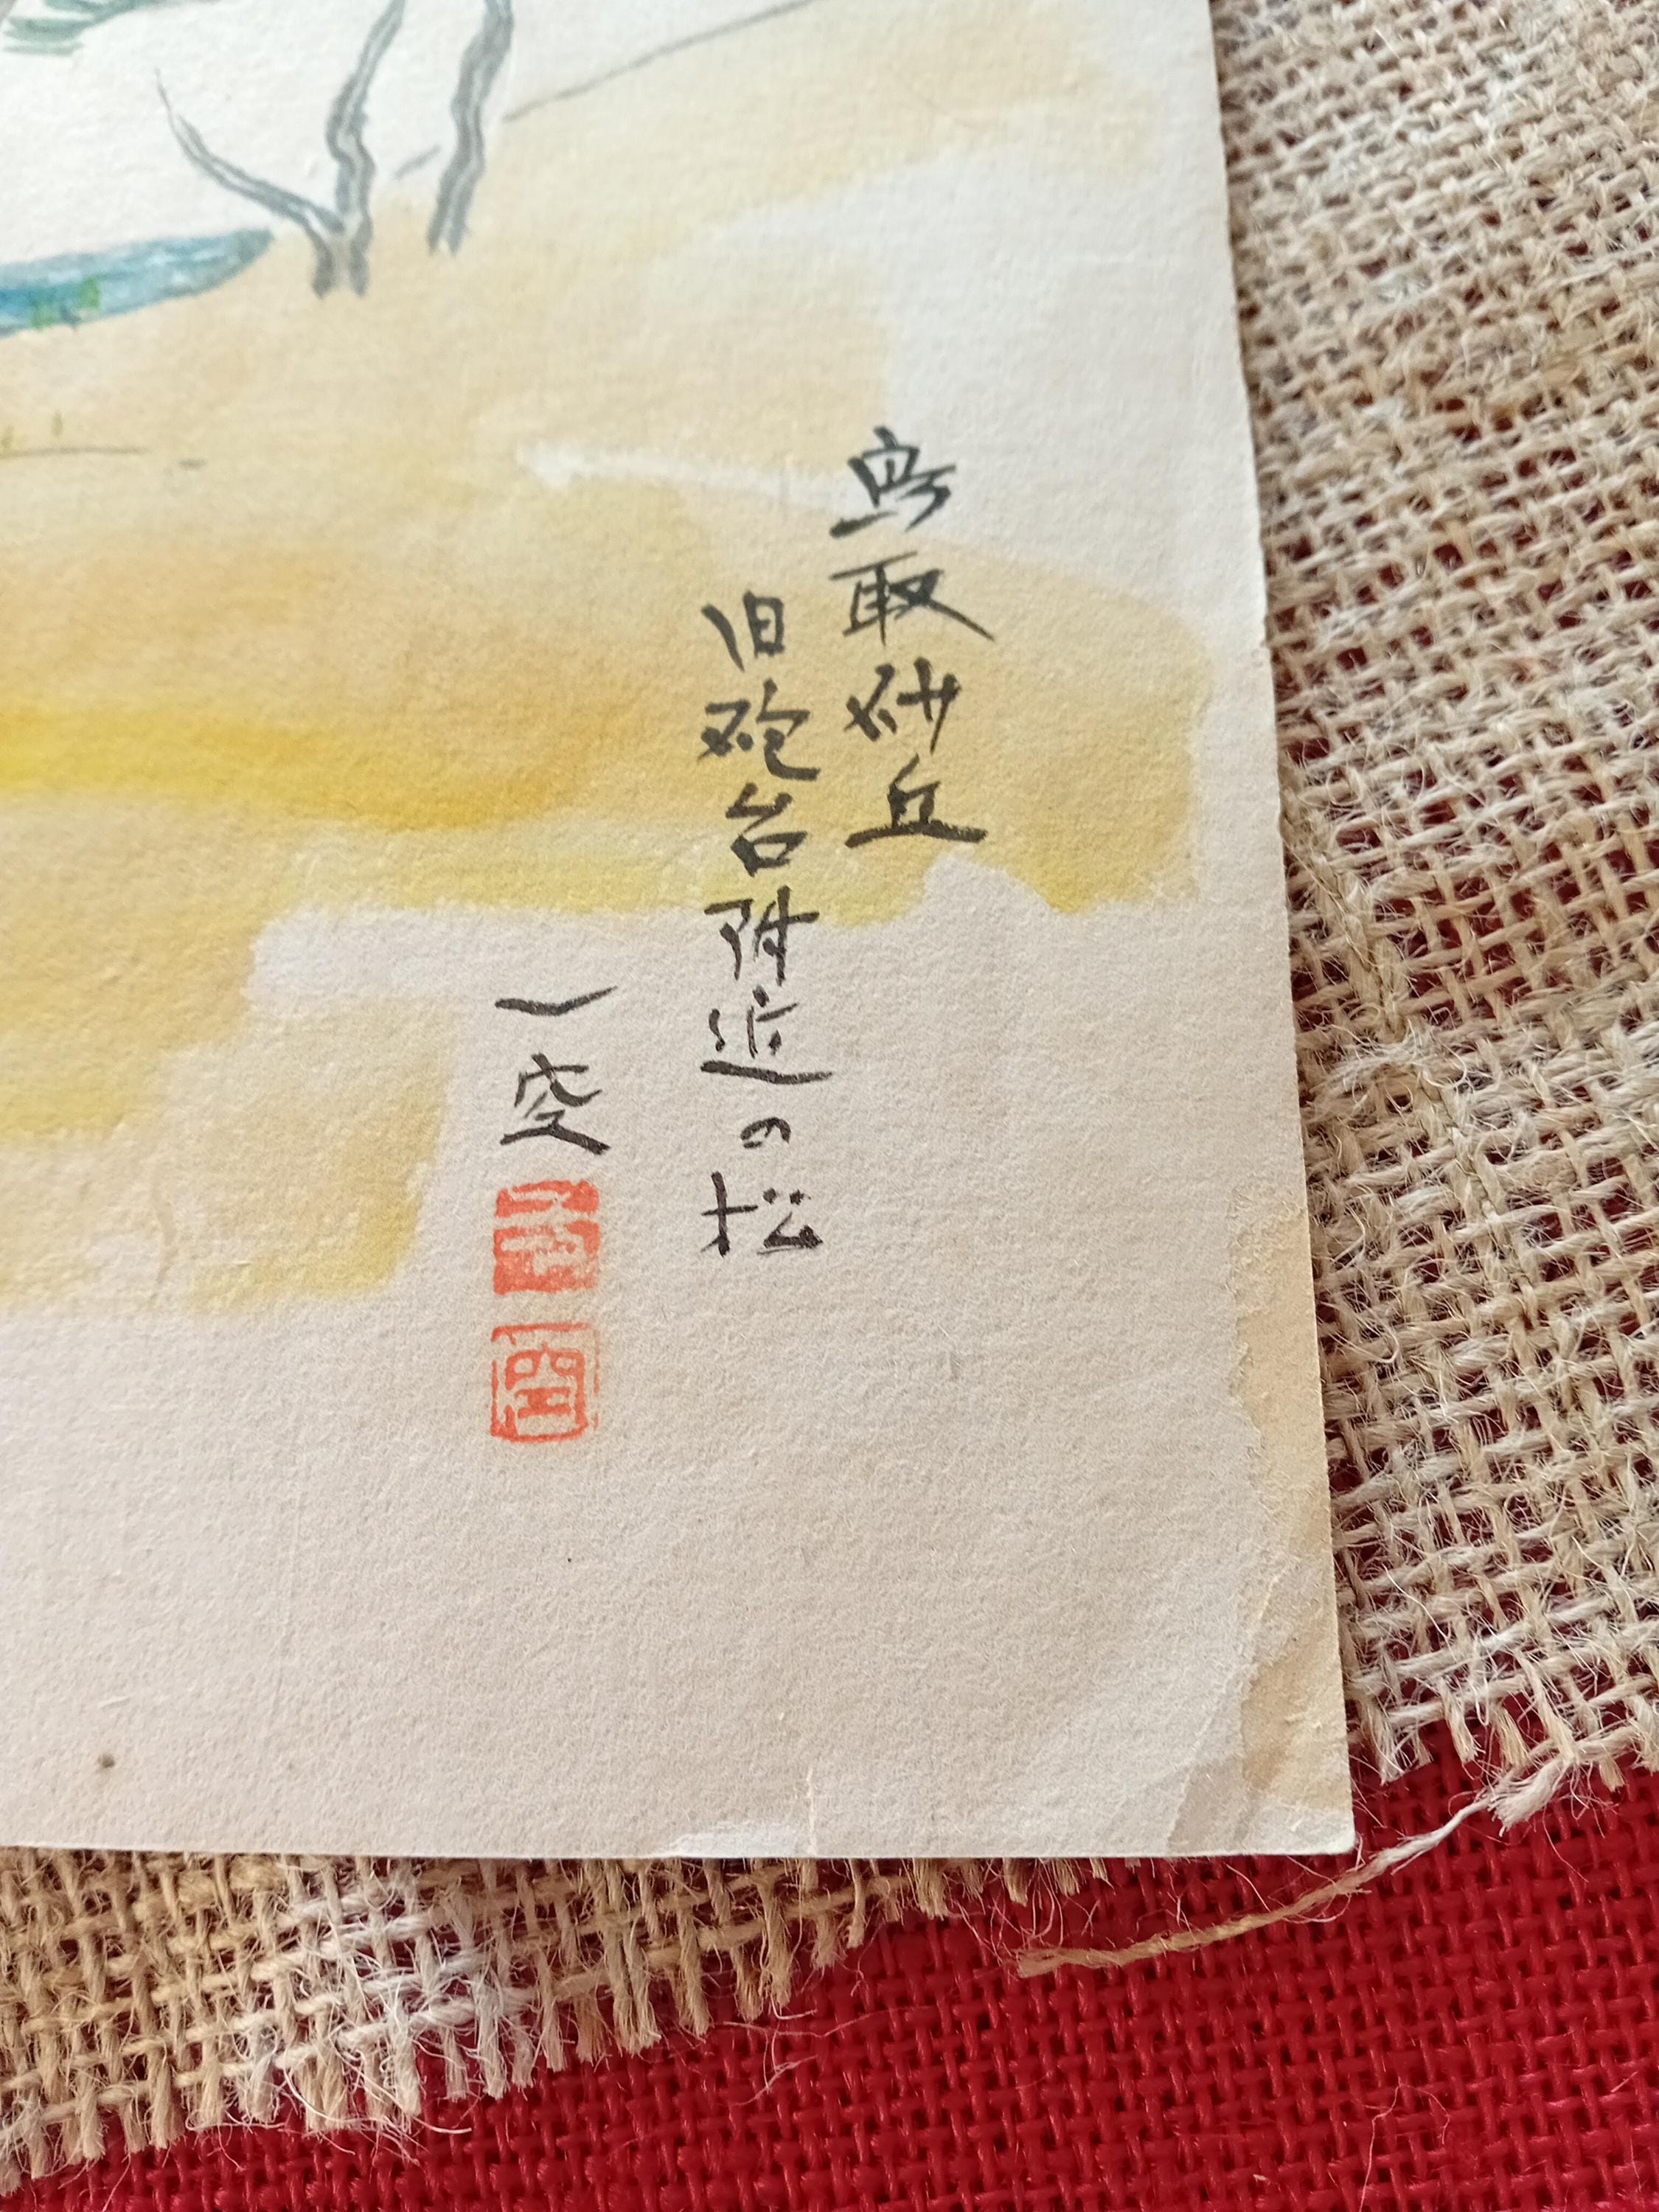 鳥取砂丘
旧砲台附近の松
一空